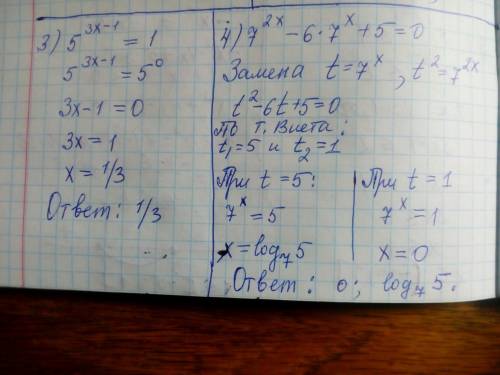 3) 5^{3x-1} = 1
5^{3x-1} = 5^0
3x-1 = 0
3x = 1
x = 1/3
Ответ: 1/3
4) 7^{2x} - 6·7^x + 5 = 0
Замена t = 7^x, t^2 = 7^{2x}
t^2 - 6t + 5 = 0
По т. Виета:
t_1 = 5 и t_2 = 1
При t = 5:
7^x = 5
x = log_7 5
При t = 1
7^x = 1
x = 0
Ответ: 0; log_7 5.